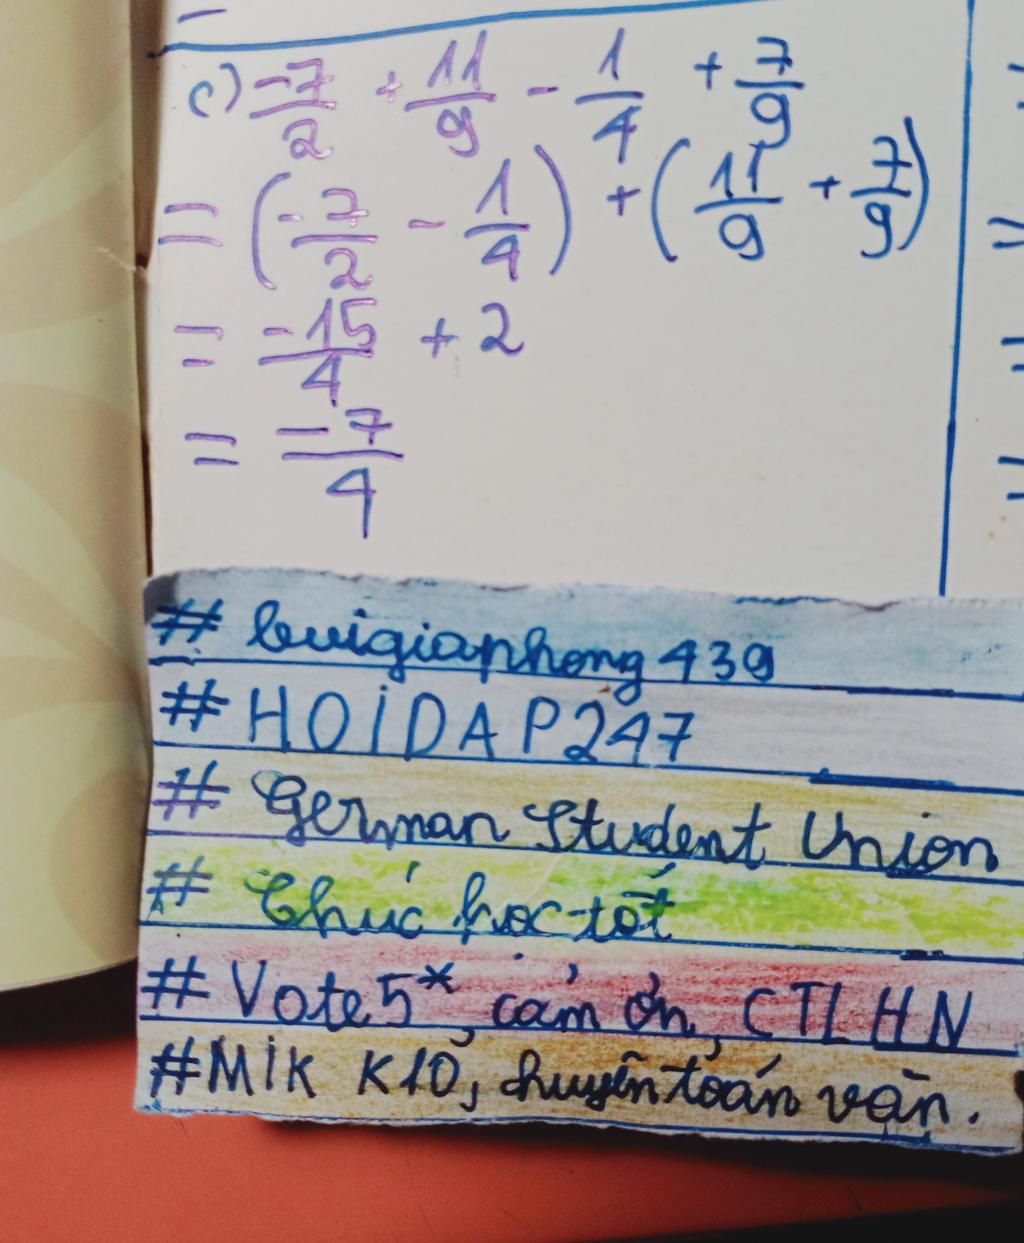 c) -7/2 + 11/9 - 1/4 + 7/9
= (-7/2 - 1/4) + (11/9 + 7/9)
= -15/4 + 2
= -7/4
# buigiaphong439
# HOIDAP247
# German Student Union
# Chúc học tốt
# Vote 5*, cảm ơn, CTLHN
#MiK K10, chuyên toán văn.